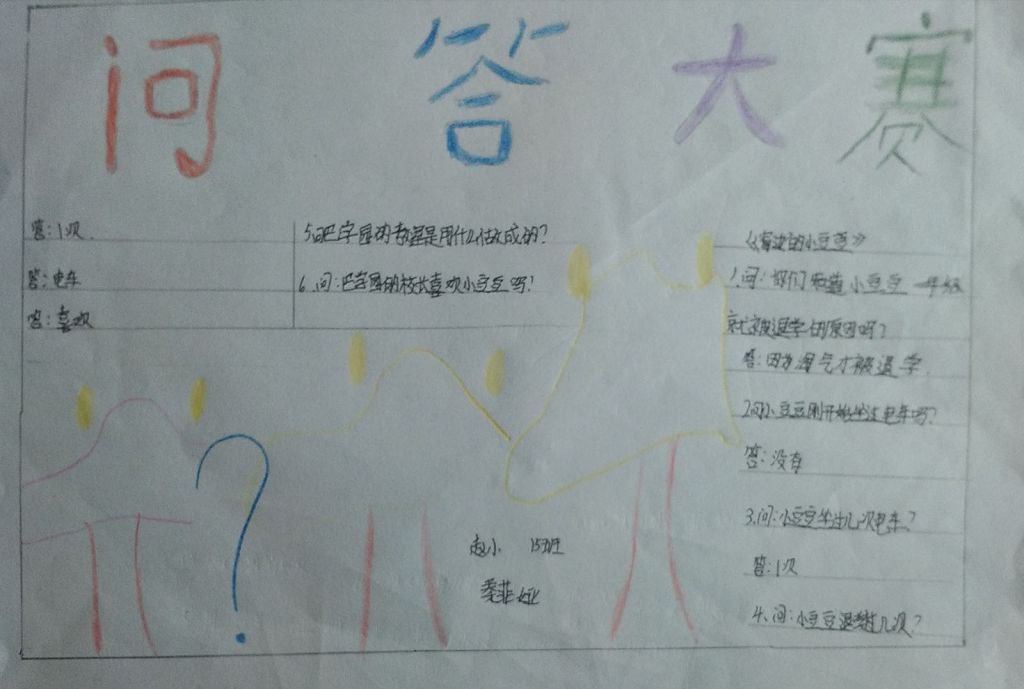 问答大赛
《窗边的小豆豆》
1.问:你们知道小豆豆一年级
就被退学的原因吗?
答:因为淘气才被退学.
2问小豆豆刚开始坐过电车吗?
答:没有
3.问:小豆豆坐过几次电车?
答:1次
4.问:小豆豆退过几次?
答:1次.
5.问巴学园的教室是用什么做成的?
答:电车
6.问:巴学园的校长喜欢小豆豆吗?
答:喜欢
赵小 15班